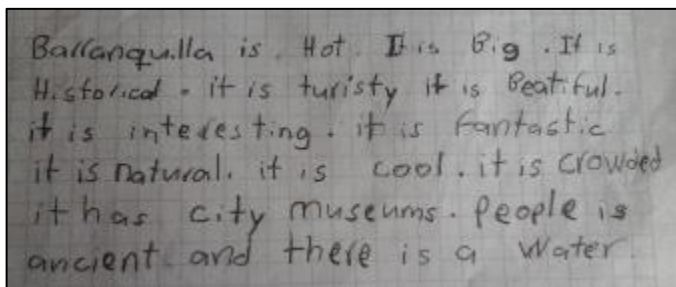 Barranquilla is. Hot. It is Big. It is
Historical. it is turisty it is Beatiful.
it is interesting. it is Fantastic
it is natural. it is cool. it is crowded
it has city museums. People is
ancient and there is a Water.